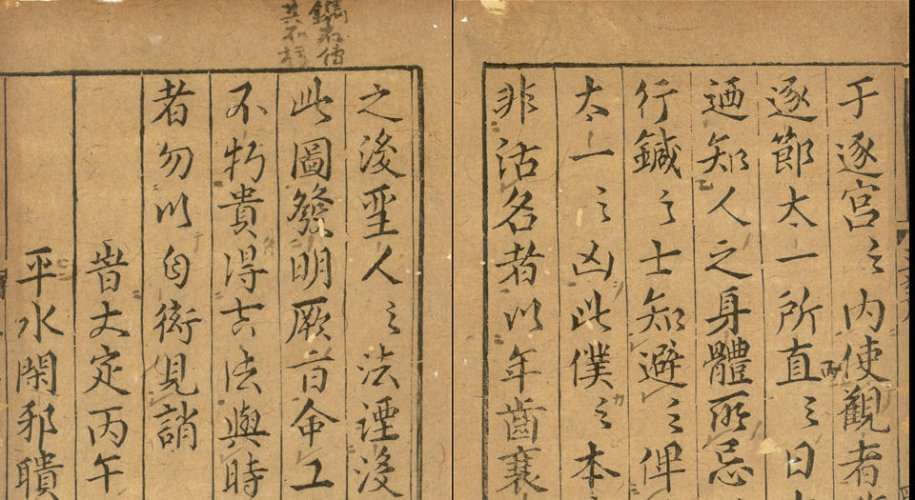 于逐宮之內使觀者
逐節太一所直之日
迺知人之身體所忌
行鍼之士知避之俾
太一之凶此僕之本
非沽名者以年齒衰
之後聖人之法湮沒
此圖發明厥旨命工
不朽貴得古法與時
者勿以自衒見誚
旹大定丙午
平水閑邪瞶